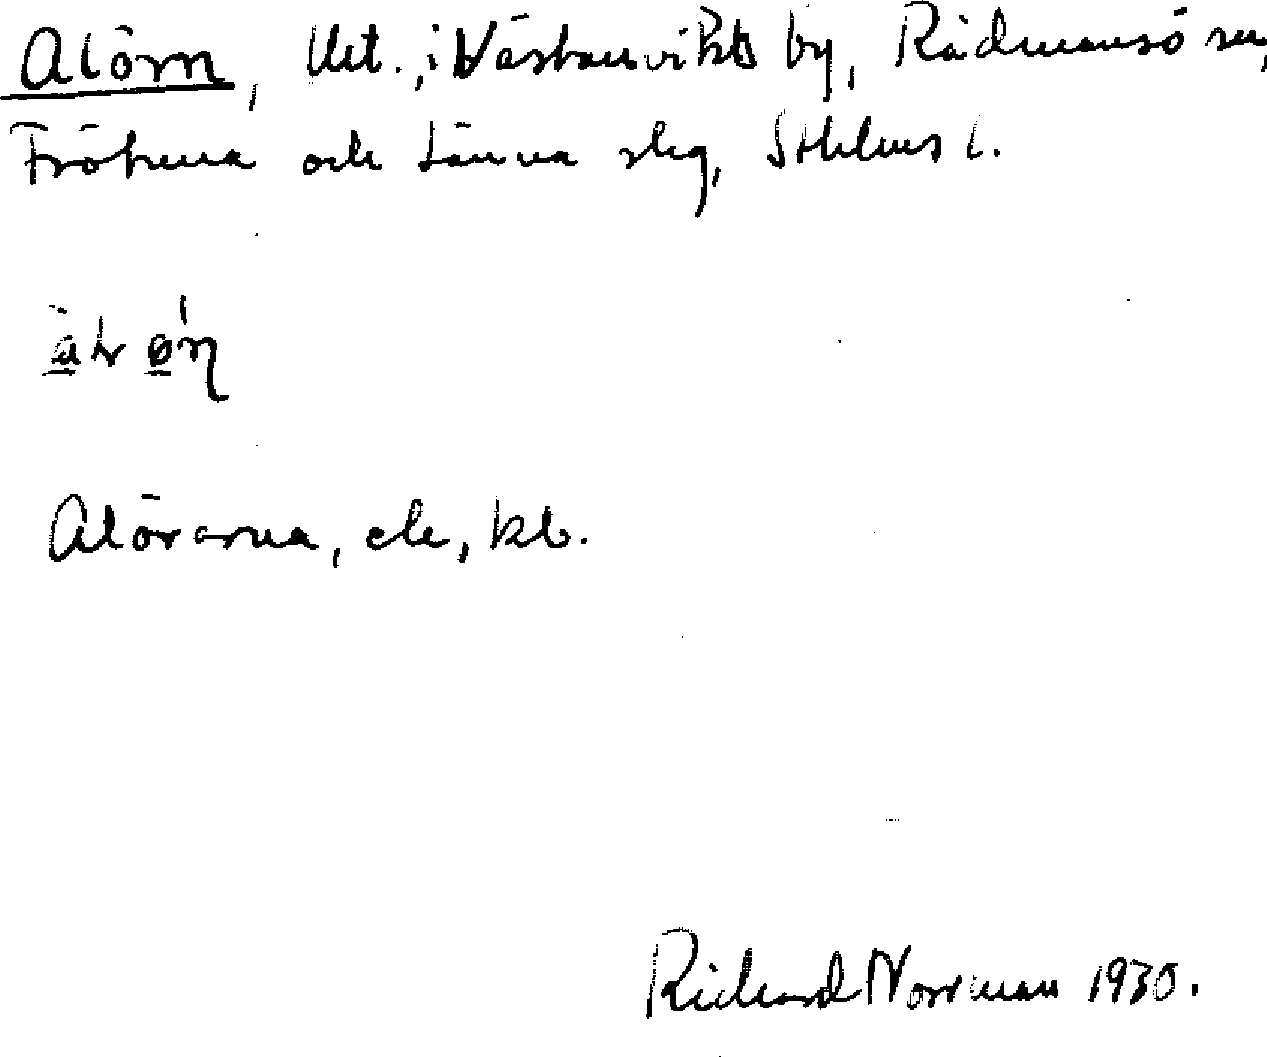 Alörn, Utt., i Västanviks by, Rådmansö sn,
Frötuna och Länna slag, Sthlms l.
Alörarna, ek, kb.
Rickard Norrman 1930.